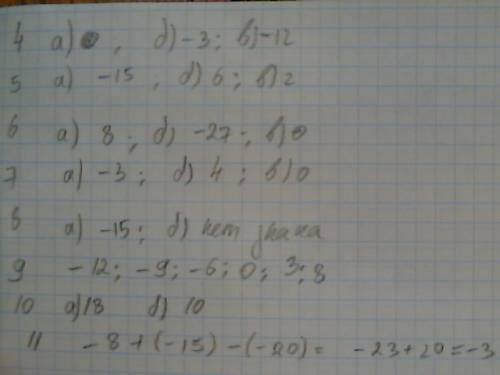 4 а) 0, б) -3; в) -12
5 а) -15, б) 6; в) 2
6 а) 8; б) -27; в) 0
7 а) -3; б) 4; в) 0
8 а) -15; б) нет знака
9 -12; -9; -6; 0; 3; 8
10 а) 18 б) 10
11 -8+(-15)-(-20)= -23+20=-3